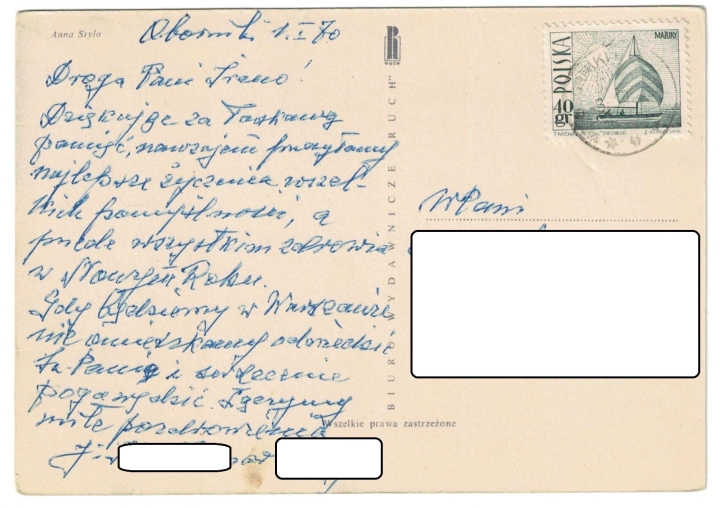 Anna Stylo
Oborniki 1.I 70
Droga Pani Ireno!
Dziękując za łaskawą
pamięć, nawzajem przesyłamy
najlepsze życzenia wszel-
kich pomyślności, a
przede wszystkim zdrowia
w Nowym Roku.
Gdy będziemy w Warszawie,
nie omieszkamy odwiedzić
Sz. Panią i serdecznie
pogawędzić. Łączymy
miłe pozdrowienia
J.
RUCH
BIURO WYDAWNICZE „RUCH”
Wszelkie prawa zastrzeżone
POLSKA
MAZURY
40 gr
WPani